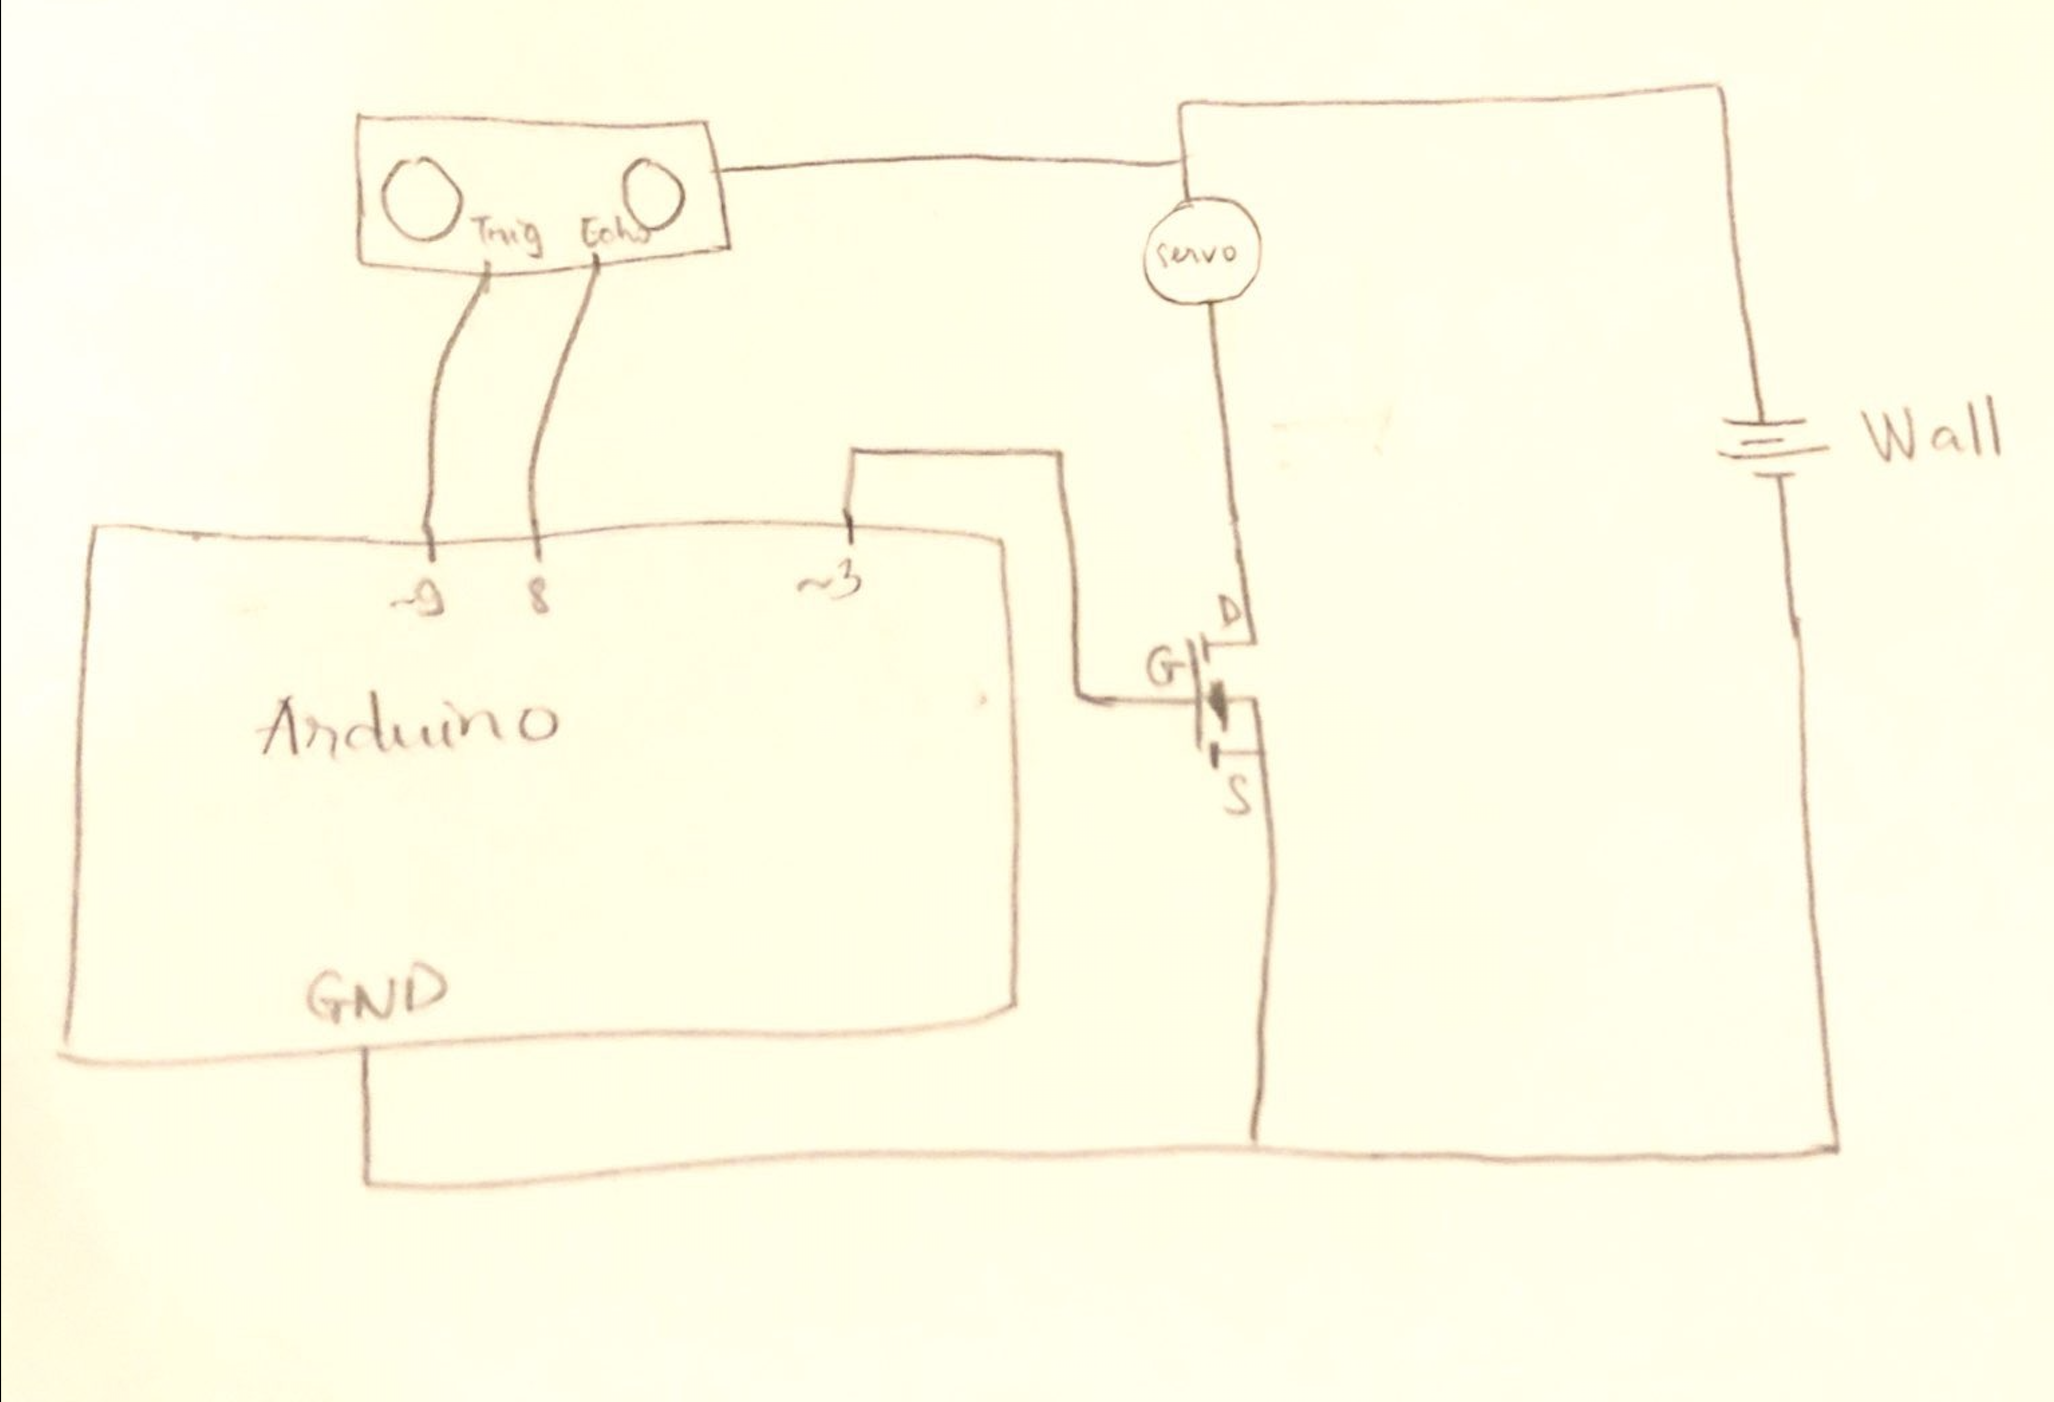 Trig Echo
servo
Wall
~9 8 ~3
D
G
Arduino
S
GND